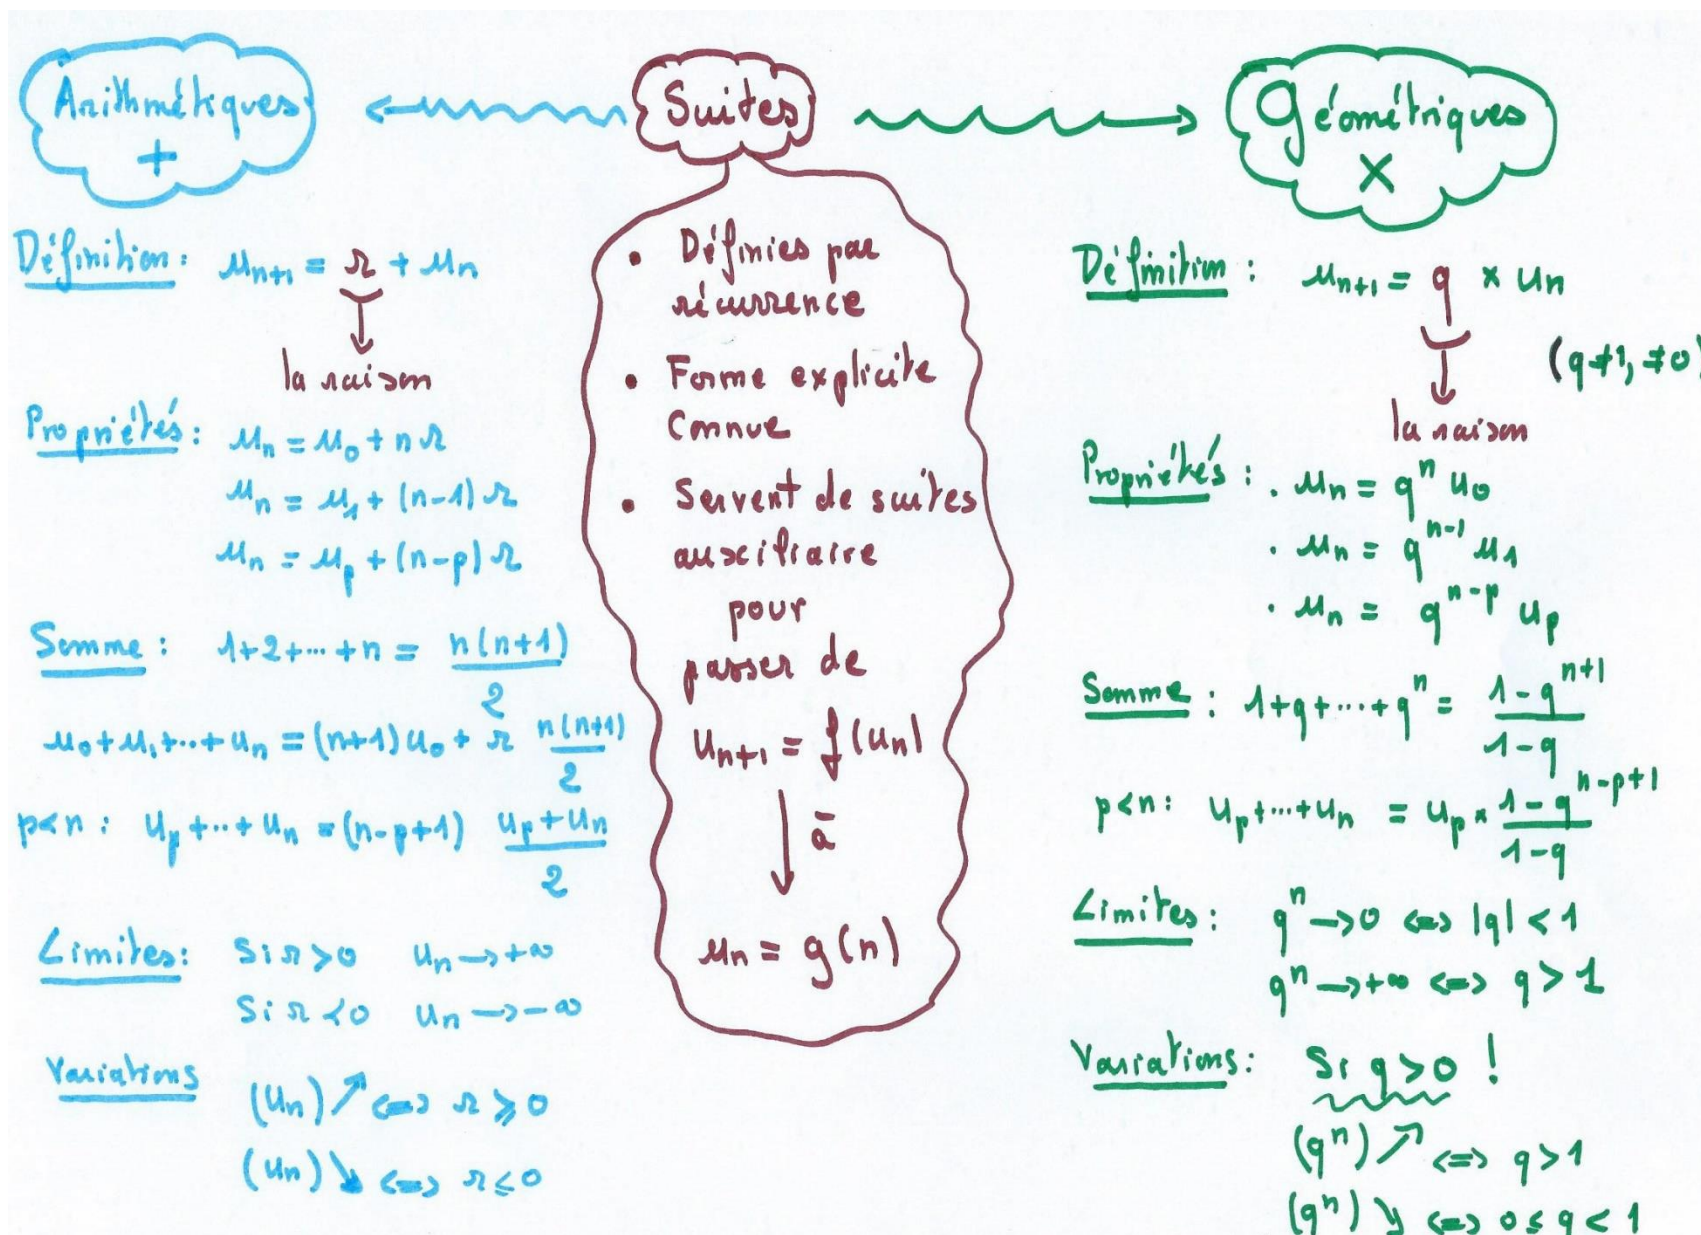 Arithmétiques
+
Définition : u_{n+1} = r + u_n
la raison
Propriétés : u_n = u_0 + n r
u_n = u_1 + (n-1) r
u_n = u_p + (n-p) r
Somme : 1+2+...+n = n(n+1)/2
u_0+u_1+...+u_n = (n+1)u_0 + r n(n+1)/2
p<n : u_p+...+u_n = (n-p+1) (u_p+u_n)/2
Limites : Si r>0 u_n → +∞
Si r<0 u_n → -∞
Variations
(u_n) ↗ ⇔ r ≥ 0
(u_n) ↘ ⇔ r ≤ 0
Suites
• Définies par
récurrence
• Forme explicite
connue
• Servent de suites
auxiliaire
pour
passer de
u_{n+1} = f(u_n)
à
u_n = g(n)
Géométriques
×
Définition : u_{n+1} = q × u_n
(q≠1, ≠0)
la raison
Propriétés : . u_n = q^n u_0
. u_n = q^{n-1} u_1
. u_n = q^{n-p} u_p
Somme : 1+q+...+q^n = (1-q^{n+1})/(1-q)
p<n : u_p+...+u_n = u_p × (1-q^{n-p+1})/(1-q)
Limites : q^n → 0 ⇔ |q| < 1
q^n → +∞ ⇔ q > 1
Variations : Si q > 0 !
(q^n) ↗ ⇔ q > 1
(q^n) ↘ ⇔ 0 ≤ q < 1